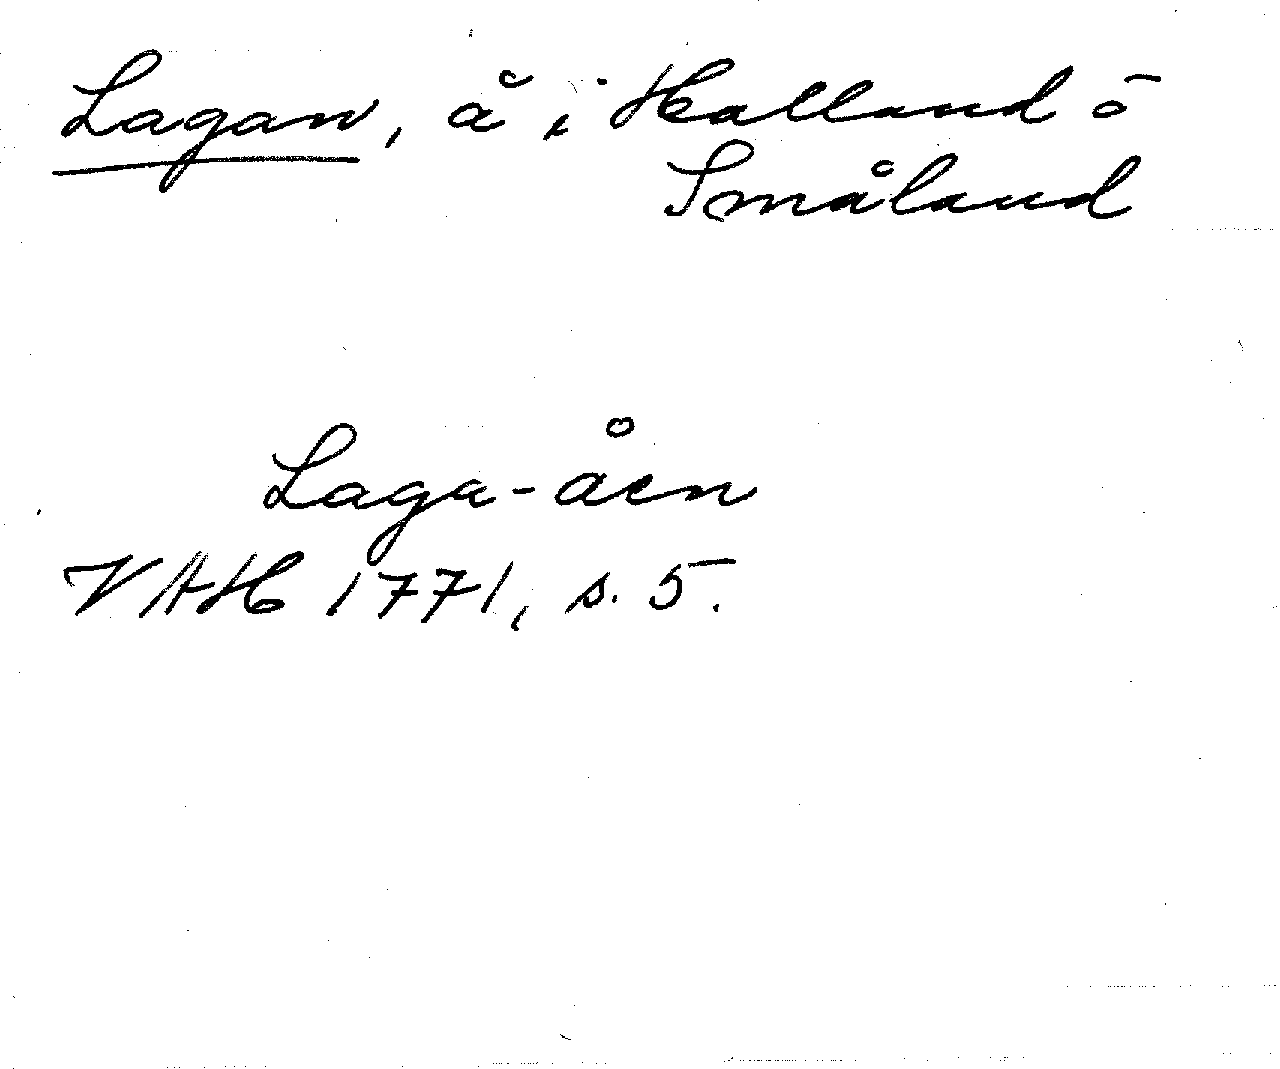 Lagan, å i Halland o
Småland
Laga-åen
VAH 1771, s. 5.